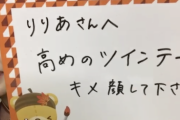 りりあさんへ
高めのツインテー
キメ顔して下さ